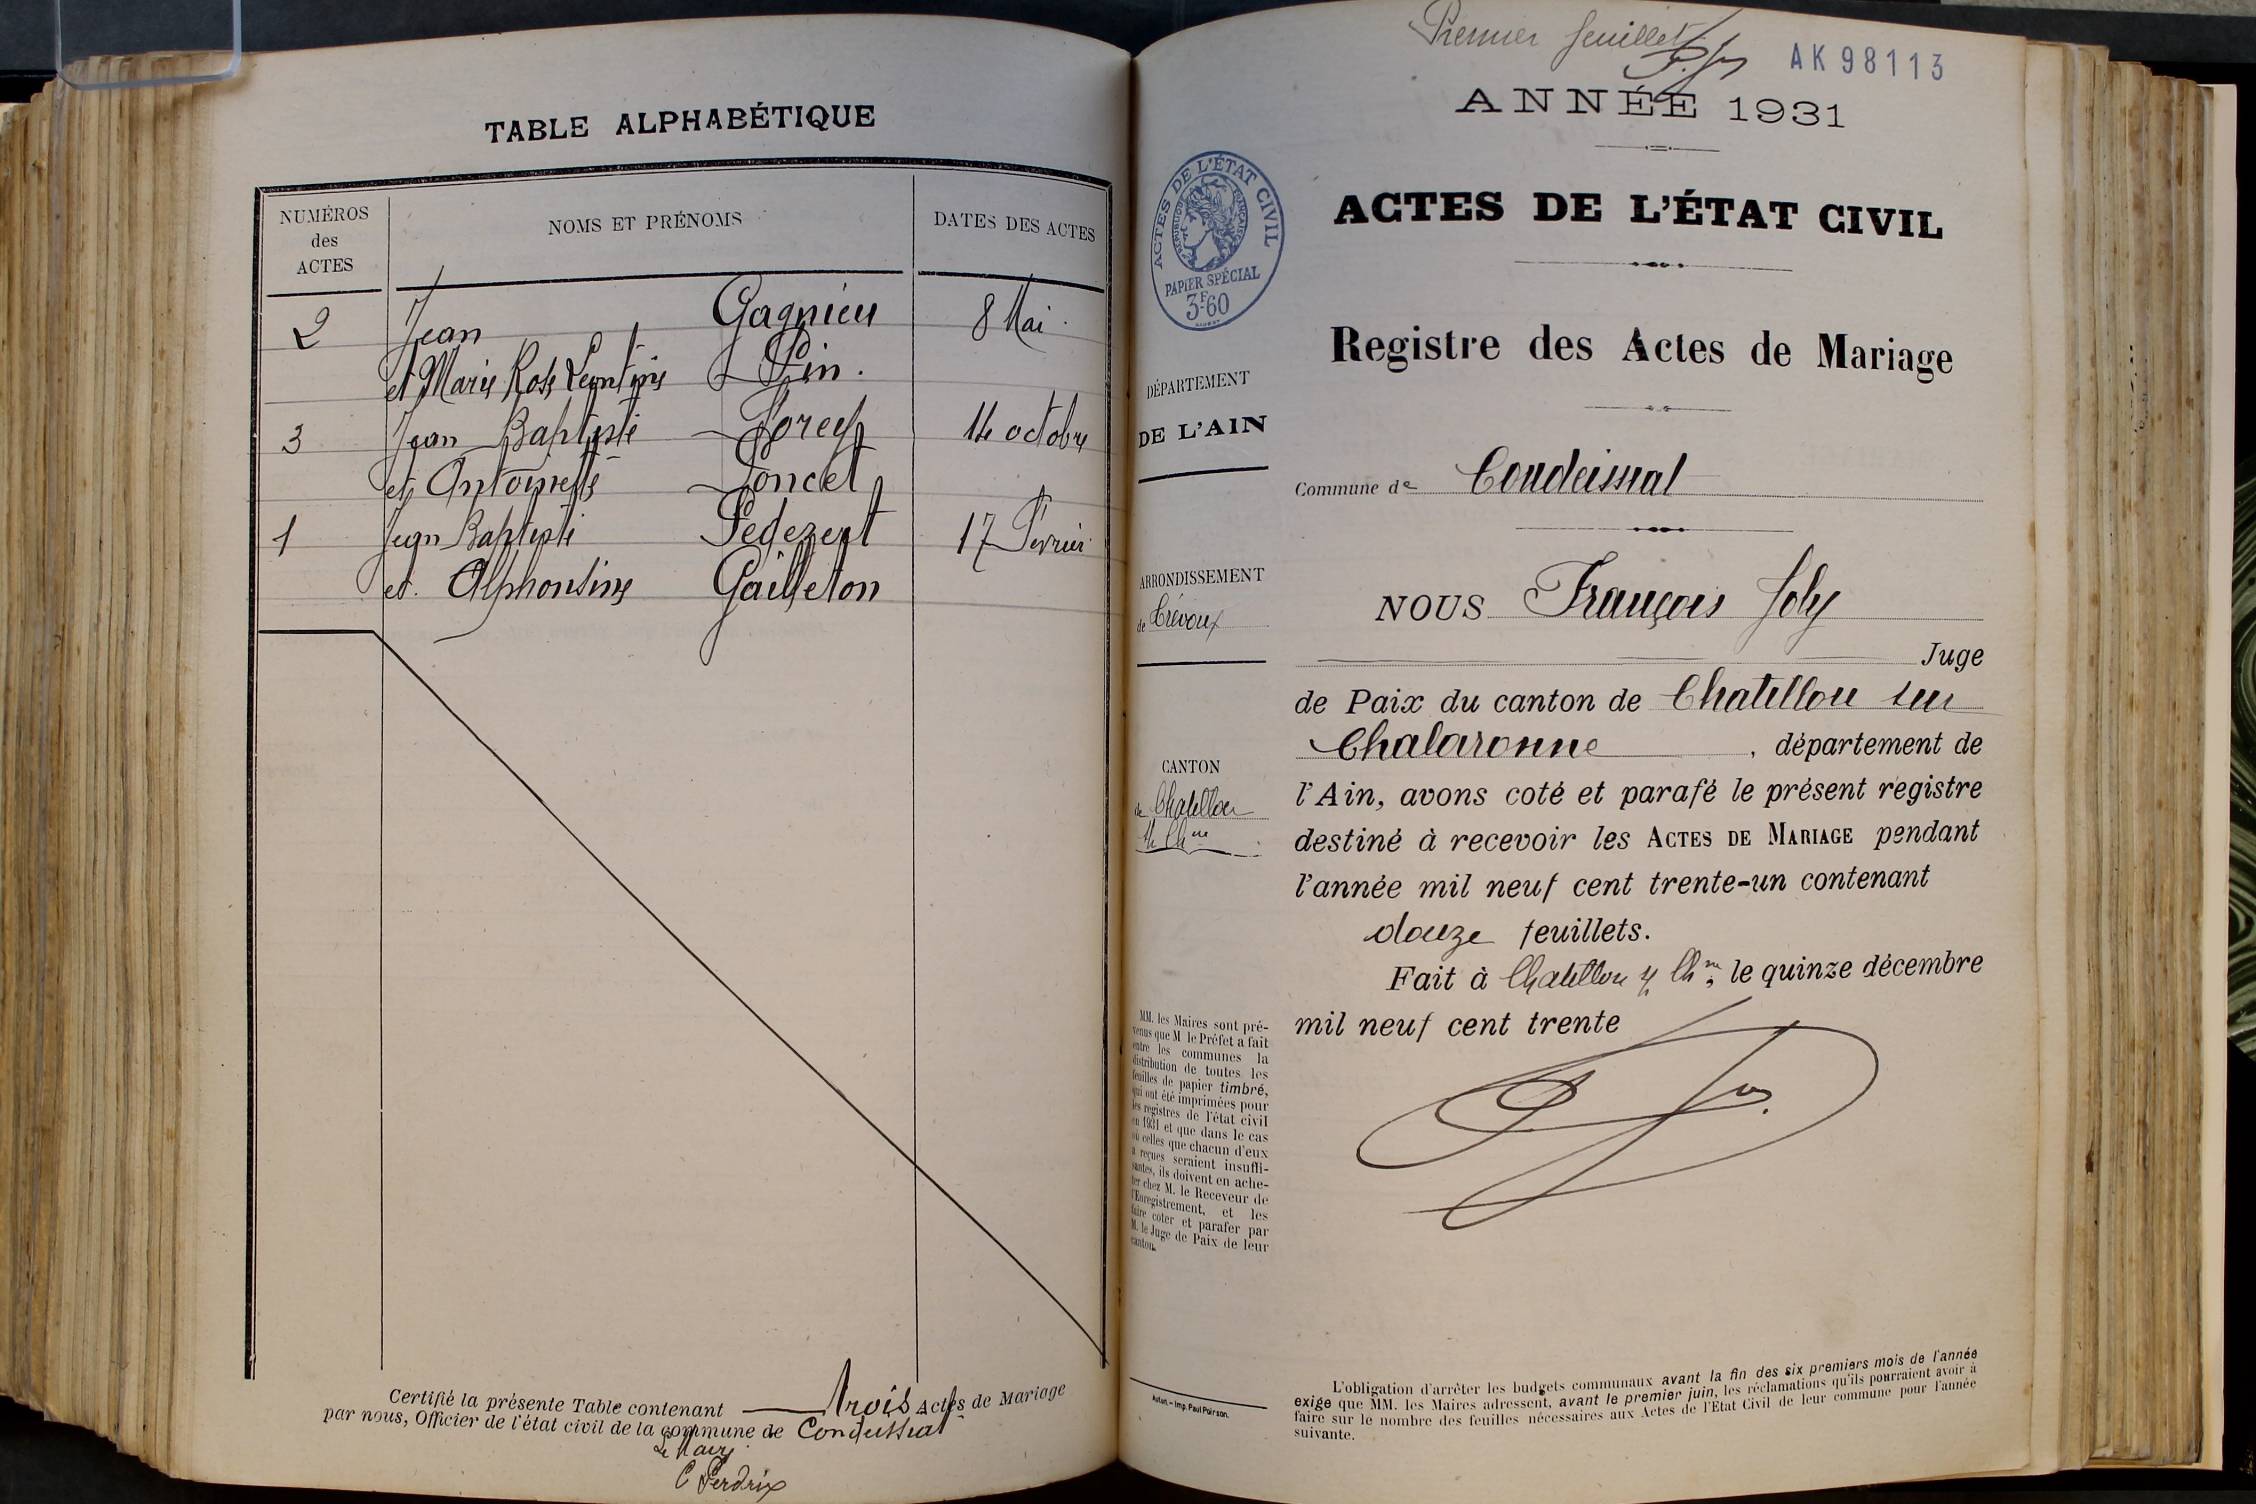 TABLE ALPHABÉTIQUE
NUMÉROS des ACTES
NOMS ET PRÉNOMS
DATES DES ACTES
2 Jean Gagnieu 8 Mai
et Marie Rose Leontine Pin.
3 Jean Baptiste Morel 14 octobre
et Antoinette Poncet
1 Jean Baptiste Pedezert 17 Février
et Alphonsine Gailleton
Certifié la présente Table contenant trois Actes de Mariage
par nous, Officier de l'état civil de la commune de Condeissiat
Le Maire
C Perdrix
Premier feuillet
AK 98113
ANNÉE 1931
ACTES DE L'ÉTAT CIVIL
RÉPUBLIQUE FRANÇAISE
PAPIER SPÉCIAL
3F60
ACTES DE L'ÉTAT CIVIL
Registre des Actes de Mariage
DÉPARTEMENT
DE L'AIN
Commune de Condeissiat
ARRONDISSEMENT
de Trévoux
NOUS François Joly
Juge
de Paix du canton de Chatillon sur
Chalaronne, département de
l'Ain, avons coté et parafé le présent registre
destiné à recevoir les ACTES DE MARIAGE pendant
l'année mil neuf cent trente-un contenant
douze feuillets.
Fait à Chatillon s/ Chne, le quinze décembre
mil neuf cent trente
CANTON
de Chatillon
s/ Chne
MM. les Maires sont pré-
venus que M le Préfet a fait
entre les communes la
distribution de toutes les
feuilles de papier timbré,
qui ont été imprimées pour
les registres de l'état civil
en 1931 et que dans le cas
où celles que chacun d'eux
a reçues seraient insuffi-
santes, ils doivent en ache-
ter chez M. le Receveur de
l'Enregistrement, et les
faire coter et parafer par
M. le Juge de Paix de leur
canton.
Autun. – Imp. Paul Poirson.
L'obligation d'arrêter les budgets communaux avant la fin des six premiers mois de l'année
exige que MM. les Maires adressent, avant le premier juin, les réclamations qu'ils pourraient avoir à
faire sur le nombre des feuilles nécessaires aux Actes de l'État Civil de leur commune pour l'année
suivante.